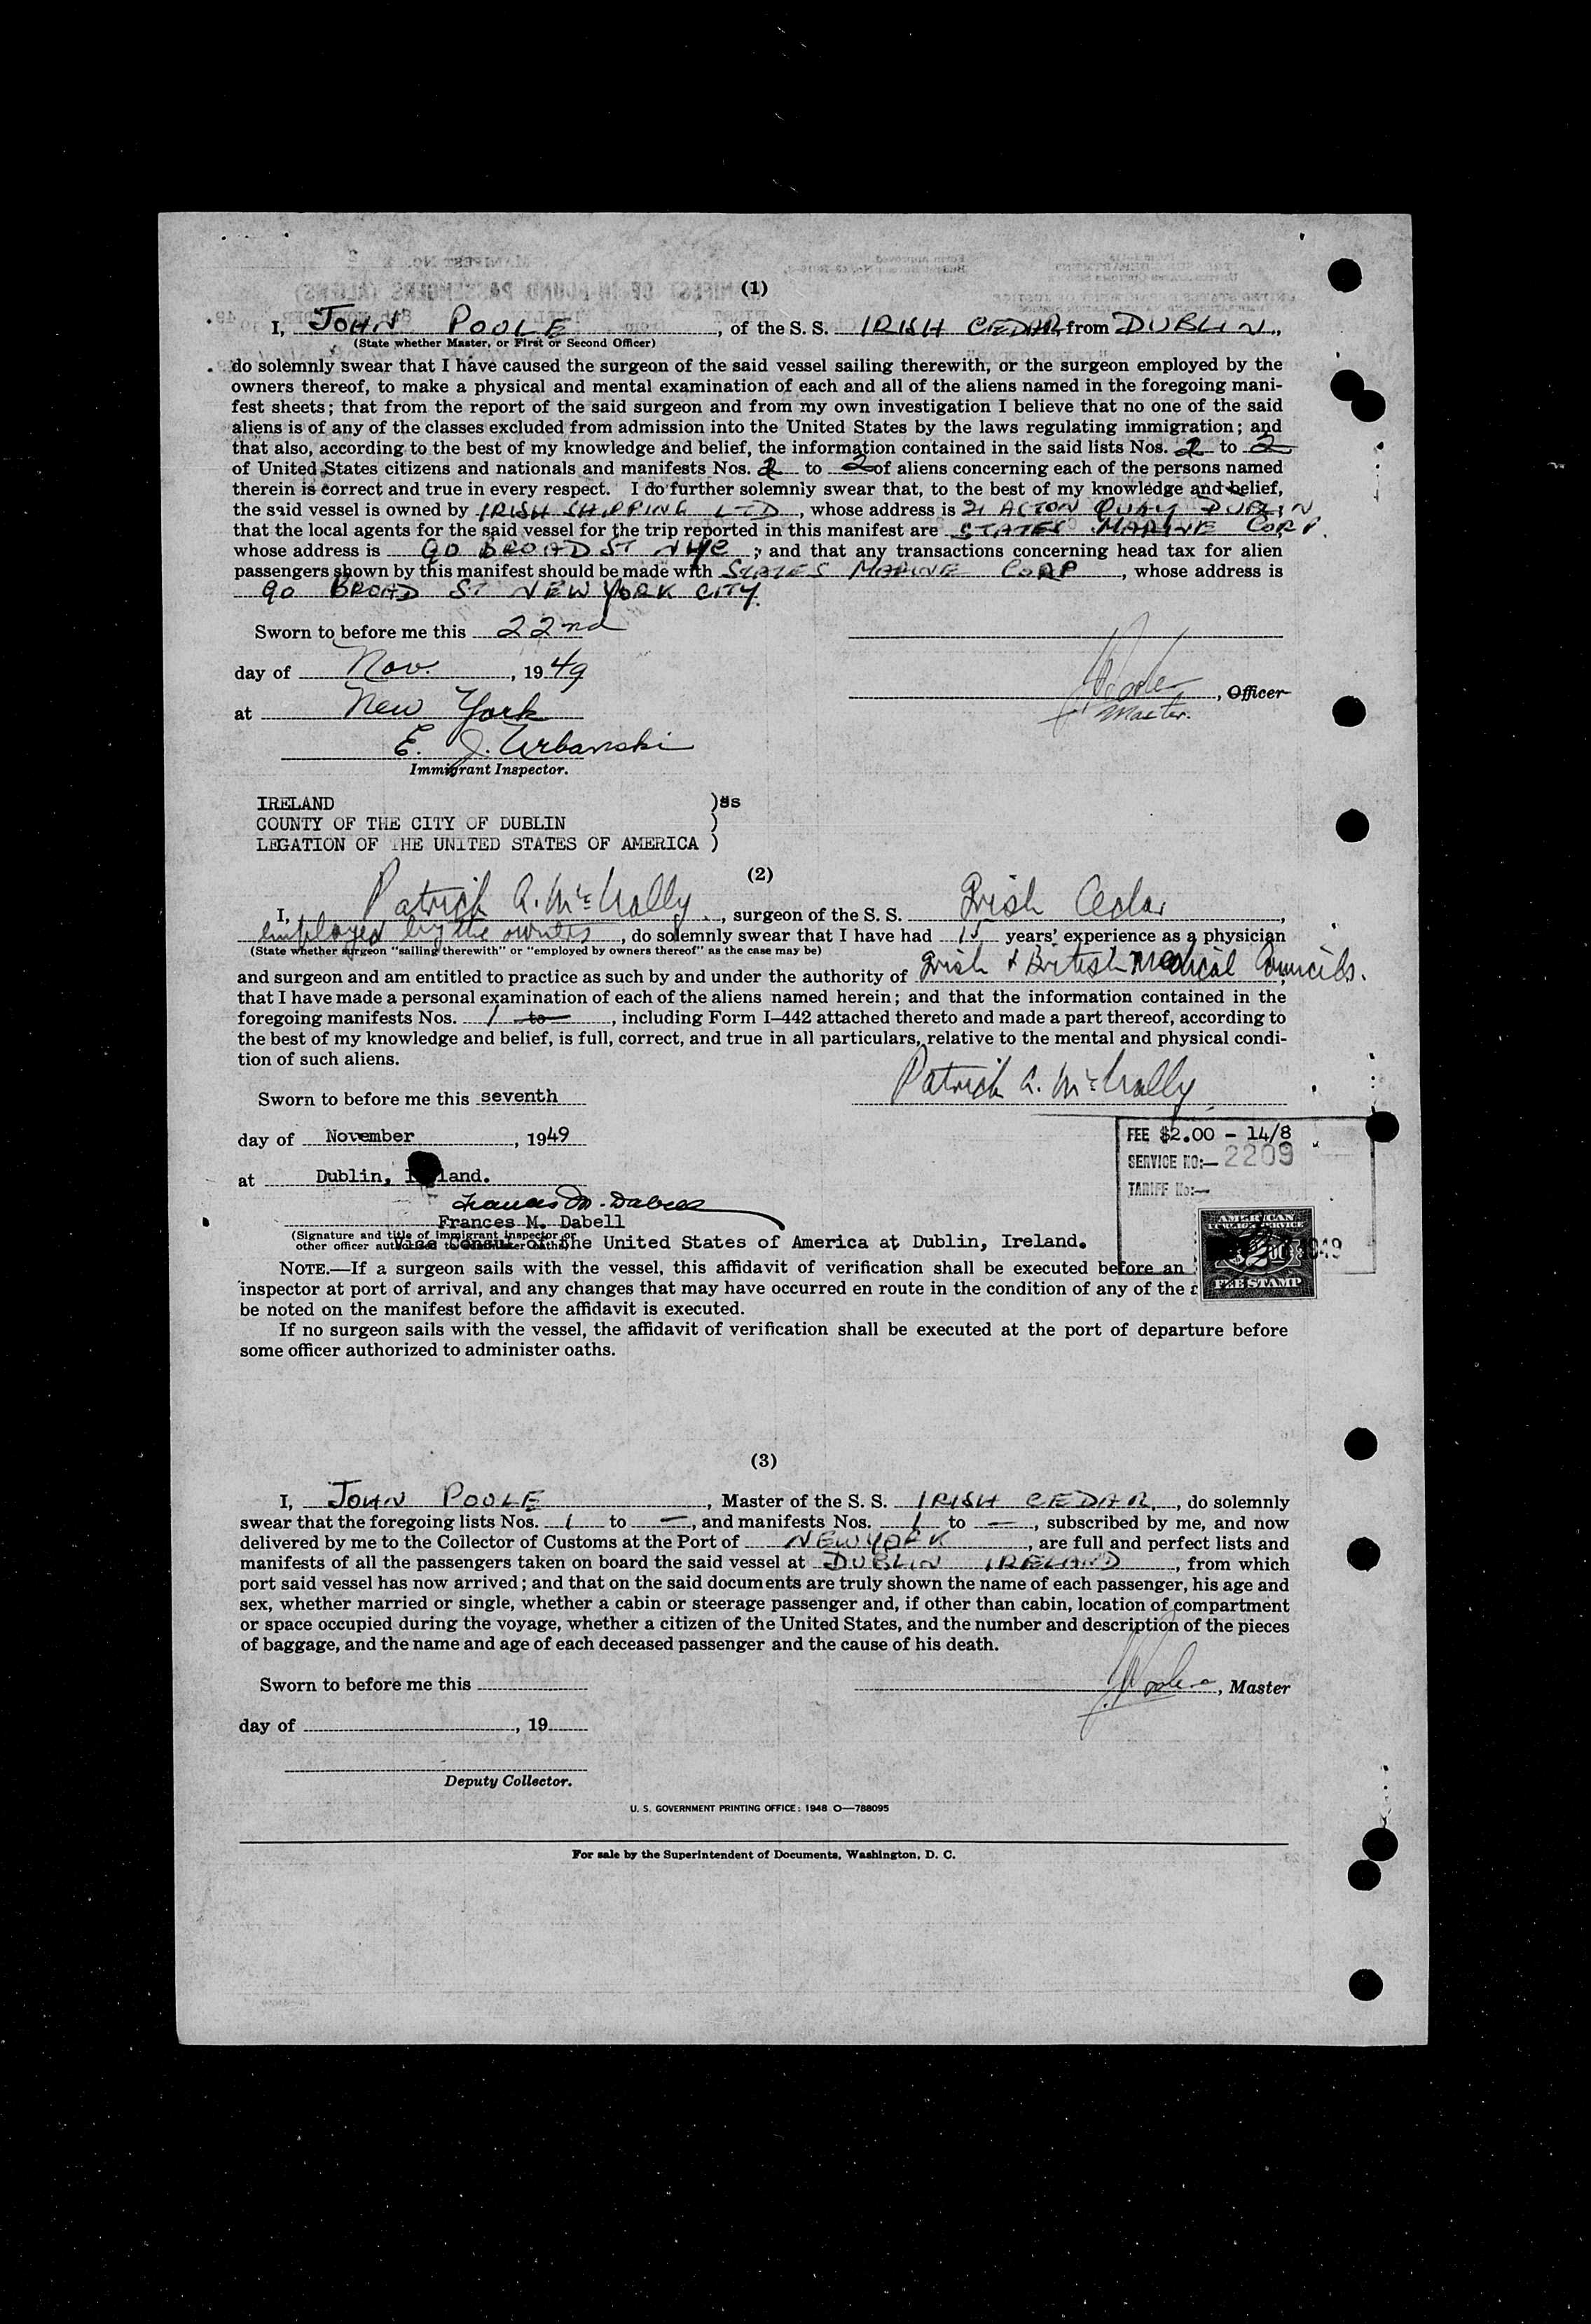 (1)
I, JOHN POOLE, of the S. S. IRISH CEDAR, from DUBLIN,
(State whether Master, or First or Second Officer)
do solemnly swear that I have caused the surgeon of the said vessel sailing therewith, or the surgeon employed by the
owners thereof, to make a physical and mental examination of each and all of the aliens named in the foregoing mani-
fest sheets; that from the report of the said surgeon and from my own investigation I believe that no one of the said
aliens is of any of the classes excluded from admission into the United States by the laws regulating immigration; and
that also, according to the best of my knowledge and belief, the information contained in the said lists Nos. 2 to 2
of United States citizens and nationals and manifests Nos. 2 to 2 of aliens concerning each of the persons named
therein is correct and true in every respect. I do further solemnly swear that, to the best of my knowledge and belief,
the said vessel is owned by IRISH SHIPPING LTD, whose address is 21 ASTON QUAY DUBLIN
that the local agents for the said vessel for the trip reported in this manifest are STATES MARINE CORP.
whose address is 90 BROAD ST NYC; and that any transactions concerning head tax for alien
passengers shown by this manifest should be made with STATES MARINE CORP, whose address is
90 BROAD ST NEW YORK CITY.
Sworn to before me this 22nd
day of Nov., 1949
Poole, Officer
at New York
Master.
E. J. Urbanski
Immigrant Inspector.
IRELAND )ss
COUNTY OF THE CITY OF DUBLIN )
LEGATION OF THE UNITED STATES OF AMERICA )
(2)
I, Patrick A. McNally, surgeon of the S. S. Irish Cedar,
employed by the owners, do solemnly swear that I have had 15 years' experience as a physician
(State whether surgeon "sailing therewith" or "employed by owners thereof" as the case may be)
and surgeon and am entitled to practice as such by and under the authority of Irish & British Medical Councils.
that I have made a personal examination of each of the aliens named herein; and that the information contained in the
foregoing manifests Nos. 1 to, including Form I–442 attached thereto and made a part thereof, according to
the best of my knowledge and belief, is full, correct, and true in all particulars, relative to the mental and physical condi-
tion of such aliens.
Patrick A. McNally
Sworn to before me this seventh
day of November, 1949
at Dublin, Ireland.
FEE $2.00 - 14/8
SERVICE NO:— 2209
TARIFF No:—
AMERICAN
FEE STAMP
1949
Frances M. Dabell
Frances M. Dabell
(Signature and title of immigrant inspector or
other officer authorized to administer oaths)
Vice Consul of the United States of America at Dublin, Ireland.
NOTE.—If a surgeon sails with the vessel, this affidavit of verification shall be executed before an
inspector at port of arrival, and any changes that may have occurred en route in the condition of any of the
be noted on the manifest before the affidavit is executed.
If no surgeon sails with the vessel, the affidavit of verification shall be executed at the port of departure before
some officer authorized to administer oaths.
(3)
I, JOHN POOLE, Master of the S. S. IRISH CEDAR, do solemnly
swear that the foregoing lists Nos. 1 to —, and manifests Nos. 1 to —, subscribed by me, and now
delivered by me to the Collector of Customs at the Port of NEW YORK, are full and perfect lists and
manifests of all the passengers taken on board the said vessel at DUBLIN IRELAND, from which
port said vessel has now arrived; and that on the said documents are truly shown the name of each passenger, his age and
sex, whether married or single, whether a cabin or steerage passenger and, if other than cabin, location of compartment
or space occupied during the voyage, whether a citizen of the United States, and the number and description of the pieces
of baggage, and the name and age of each deceased passenger and the cause of his death.
Sworn to before me this
Poole, Master
day of, 19
Deputy Collector.
U. S. GOVERNMENT PRINTING OFFICE: 1948 O—788095
For sale by the Superintendent of Documents, Washington, D. C.